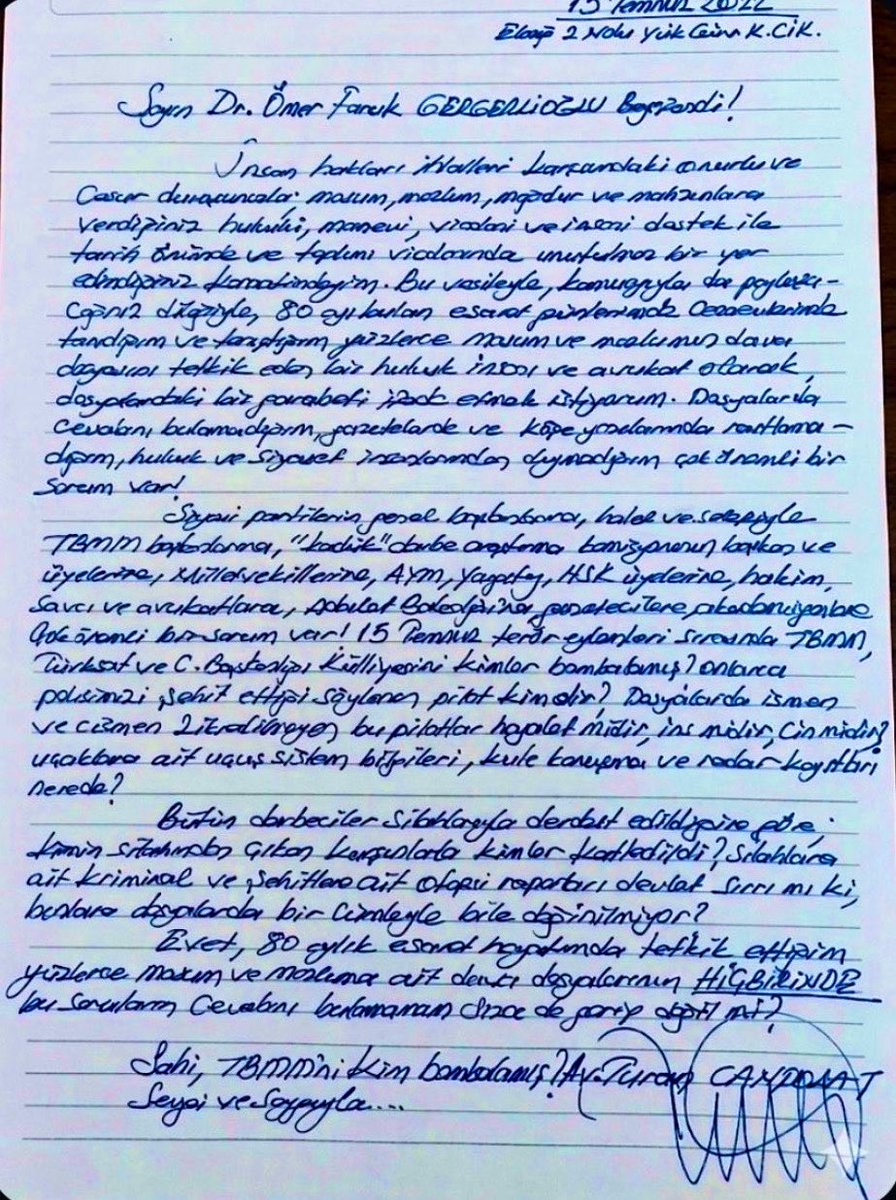 15 Temmuz 2022
Elazığ 2 Nolu Yük Güv. K. CİK.
Sayın Dr. Ömer Faruk GERGERLİOĞLU Beyefendi!
İnsan hakları ihlalleri karşısındaki onurlu ve
Cesur duruşunuzla; masum, mazlum, mağdur ve mahzunlara
verdiğiniz hukuki, manevi, vicdani ve insani destek ile
tarih önünde ve toplum vicdanında unutulmaz bir yer
edindiğiniz kanaatindeyim. Bu vesileyle, kamuoyuyla da paylaşa-
cağınız dileğiyle, 80 ayı bulan esaret günlerimde cezaevlerinde
tanıdığım ve tanıştığım yüzlerce masum ve mazlumun dava
dosyasını tetkik eden bir hukuk insanı ve avukat olarak,
dosyalardaki bir garabeti ifade etmek istiyorum. Dosyalarda
cevabını bulamadığım, gazetelerde ve köşe yazılarında rastlama-
dığım, hukuk ve siyaset insanlarından duymadığım çok önemli bir
sorum var!
Siyasi partilerin genel başkanlarına, halef ve selefiyle
TBMM başkanlarına, "kadük" darbe araştırma komisyonunun başkan ve
üyelerine, Milletvekillerine, AYM, Yargıtay, HSK üyelerine, hakim,
savcı ve avukatlara, Adalet Bakanlığına, gazetecilere, akademisyenlere
Çok önemli bir sorum var! 15 Temmuz terör eylemleri sırasında TBMM,
Türksat ve C. Başkanlığı Külliyesini kimler bombalamış? onlarca
polisimizi şehit ettiği söylenen pilot kimdir? Dosyalarda ismen
ve cismen zikredilmeyen bu pilotlar hayalet midir, ins midir, cin midir?
uçaklara ait uçuş sistem bilgileri, kule konuşma ve radar kayıtları
nerede?
Bütün darbeciler silahlarıyla derdest edildiğine göre;
kimin silahından çıkan kurşunlarla kimler katledildi? Silahlara
ait kriminal ve şehitlere ait otopsi raporları devlet sırrı mı ki,
bunlara dosyalarda bir cümleyle bile değinilmiyor?
Evet, 80 aylık esaret hayatımda tetkik ettiğim
yüzlerce masum ve mazluma ait dava dosyalarının HİÇBİRİNDE
bu soruların cevabını bulamamam sizce de garip değil mi?
Sahi, TBMM'ni kim bombalamış? Av. Turan CANPOLAT
Sevgi ve Saygıyla....